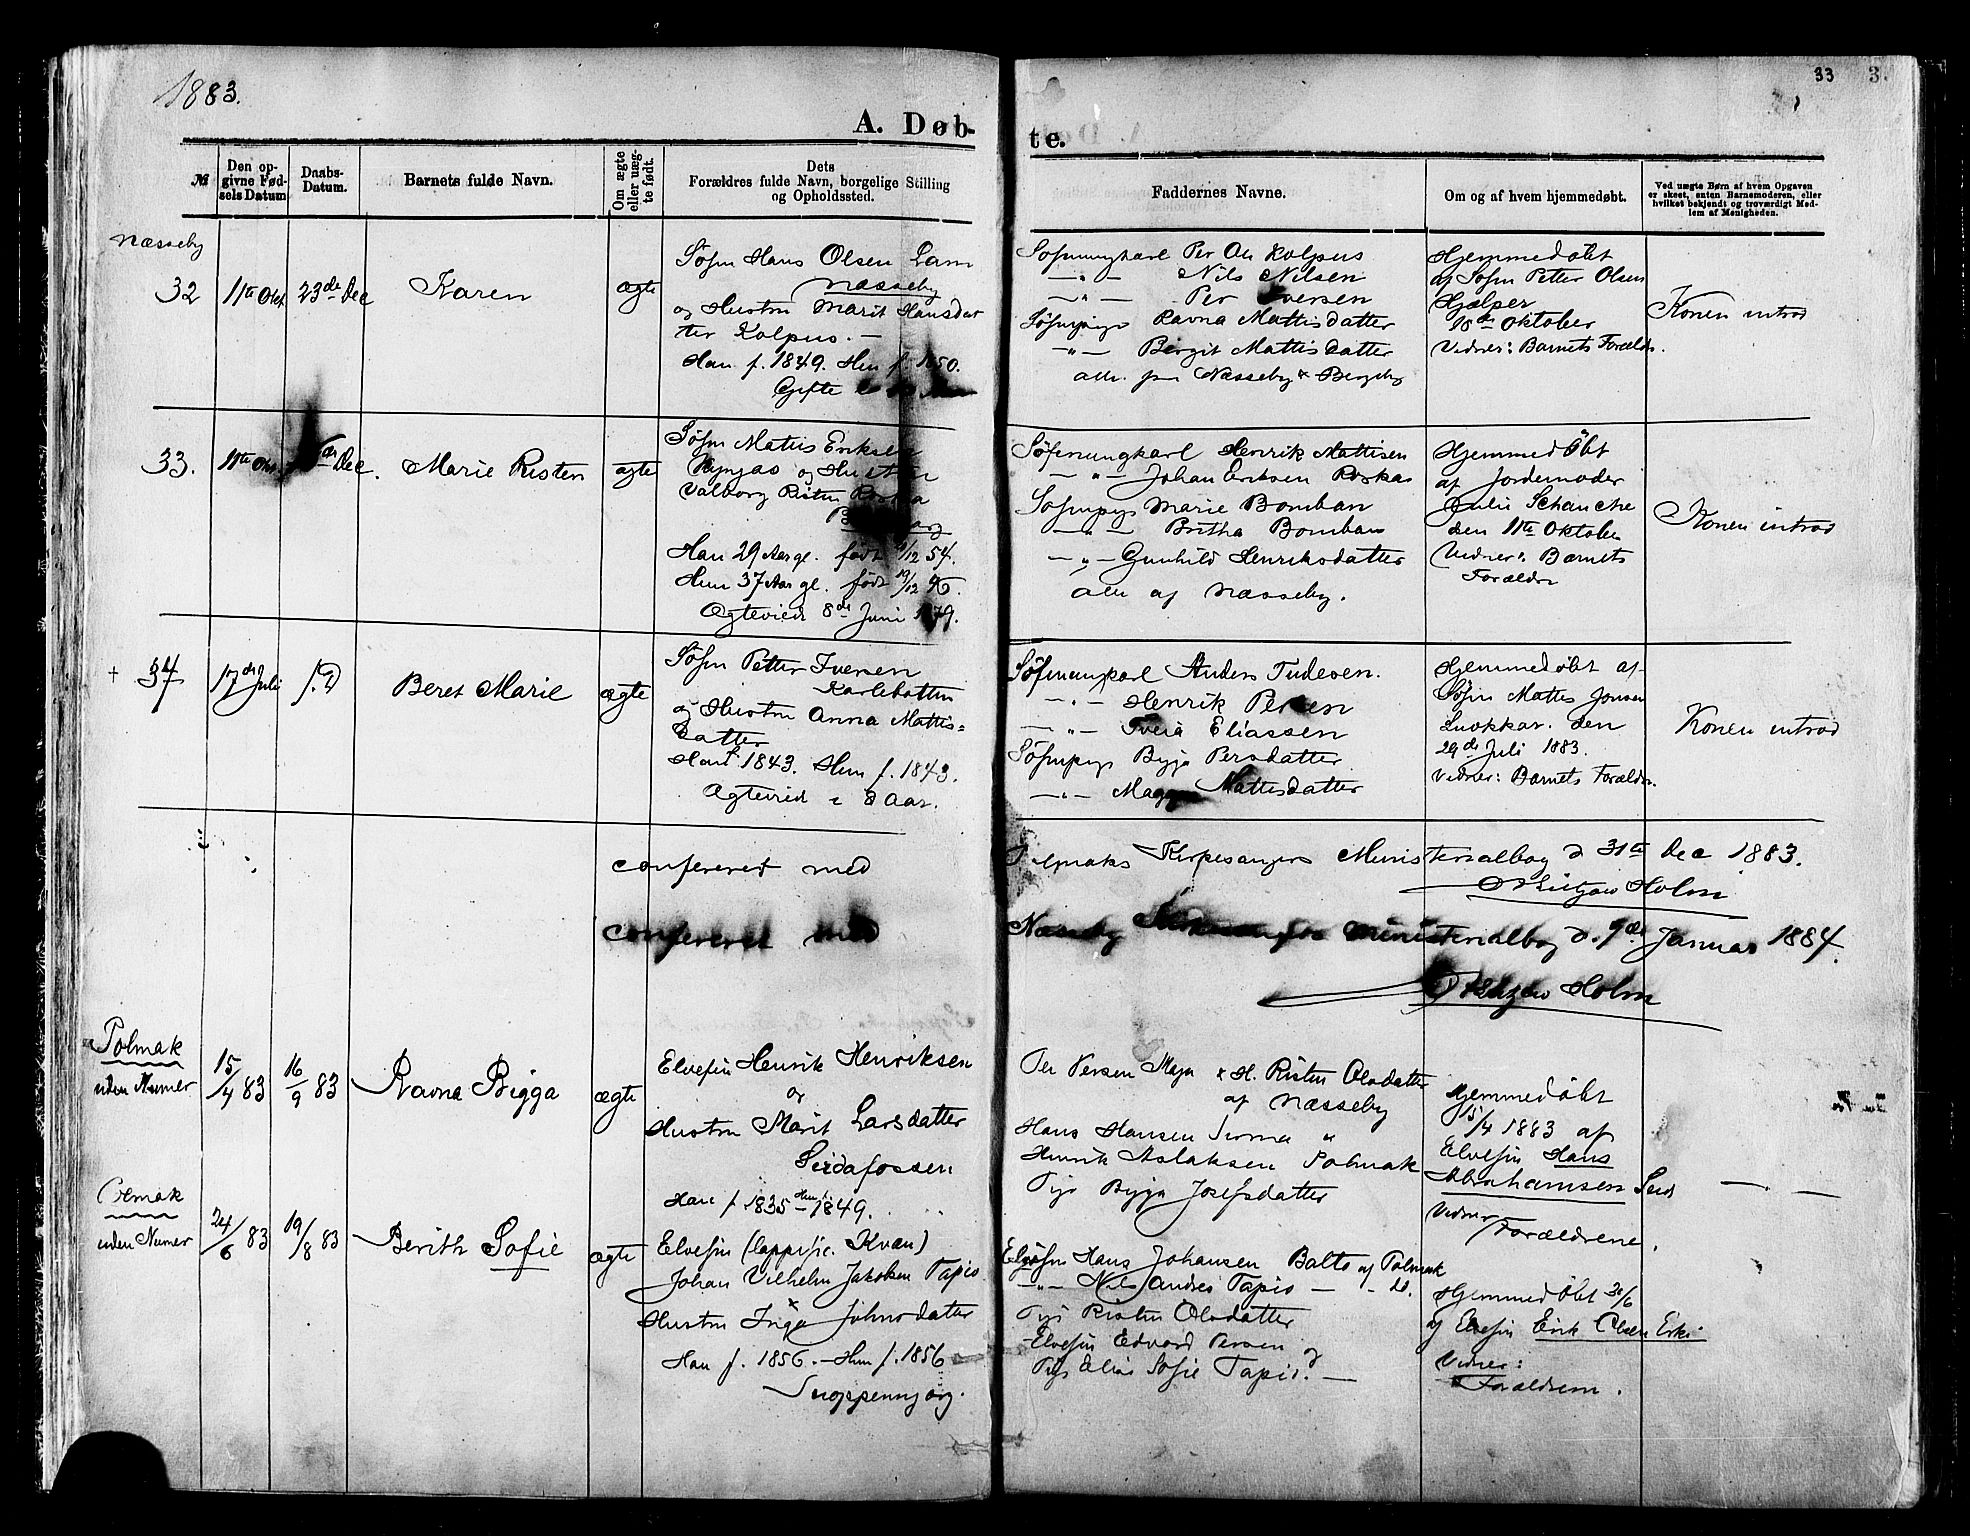 1883.
33 3.
A. Døb-
te.
№
Den op-
givne Fød-
sels Datum
Daabs-
Datum.
Barnets fulde Navn.
Om ægte
eller uæg-
te født.
Dets
Forældres fulde Navn, borgelige Stilling
og Opholdssted.
Faddernes Navne.
Om og af hvem hjemmedøbt.
Ved uægte Børn af hvem Opgaven
er skeet, enten Barnemoderen, eller
hvilket bekjendt og troværdigt Med-
lem af Menigheden.
Næsseby
32
11te Okt
23de Dec
Karen
ægte
Søfin Hans Olsen
Næsseby
og Hustru Marit Hansdat
ter Kolpus. —
Han f. 1849. Hun f. 1850.
Gifte
Søfinungkarl Per Ole Kolpus
—"— Nils Nilsen
—"— Per Iversen
Søfinpige Ravna Mattisdatter
—"— Birgit Mattisdatter
alle fra Næsseby & Bergeby
Hjemmedøbt
af Søfin Petter Olsen
Hjælper
18de Oktober
Vidner: Barnets Forældr.
Konen introd
33.
11te Okt
Dec.
Marie Risten
ægte
Søfin Mattis Eriksen
og Hustru
Valborg Risten
Han 29 Aar gl. født /12 54.
Hun 37 Aar gl. født 19/12 46.
Ægteviede 8de Juni 1879.
Søfinungkarl Henrik Mattisen
—"— Johan Eriksen
Søfinpige Marie Bomban
—"— Britha Bomban
—"— Gunhild Henriksdatter
alle af Næsseby.
Hjemmedøbt
af Jordemoder
Julie Schanche
den 11te Oktober
Vidner: Barnets
Forældre
Konen introd
+ 34
17de Juli
Beret Marie
ægte
Søfin Petter Iversen
Karlebotten
og Hustru Anna Mattis=
datter
Han f. 1843. Hun f. 1843.
Ægteviede i 8 Aar.
Søfinungkarl Anders Tudesen.
—"— Henrik Persen
—"— Eliassen
Søfinpige Bigja Persdatter
—"— Magga Mattisdatter
Hjemmedøbt af
Søfin Mattis Jonsen
den
29de Juli 1883.
Vidner: Barnets Forældr.
Konen introd
confereret med
Polmaks Kirkesangers Ministerialbog d 31te Dec 1883.
Holm
confereret med
Næsseby Kirkesangers Ministerialbog d. 9de Januar 1884.
Holm
Polmak
uden Numer
15/4 83
16/9 83
Ravna Bigga
ægte
Elvefin Henrik Henriksen
og
Hustru Marit Larsdatter
Seidafossen
Han f 1835 Hun f. 1849.
Ole Persen Maja & H. Risten Olsdatter
af Næsseby
Hans Hansen Sirma "
Henrik Aslaksen Polmak
Pige Bigja Josefsdatter
Hjemmedøbt
15/4 1883 af
Elvefin Hans
Abrahamsen
Vidner
Forældrene.
— —
Polmak
uden Numer
24/6 83
19/8 83
Berith Sofie
ægte
Elvefin (lappisk. Kvæn)
Johan Vilhelm Jakobsen Tapio
Hustru Inga Johnsdatter
Han f. 1856. — Hun f. 1856
Elvefin Hans Johansen Balto af Polmak
—"— Nils Andres Tapio — - do.
Pige Risten Olsdatter
Elvefin Edvard Persen og
Pige Elen Sofie Tapio. —
Hjemmedøbt 30/6
af Elvefin Erik Olsen
Vidner:
Forældrene.